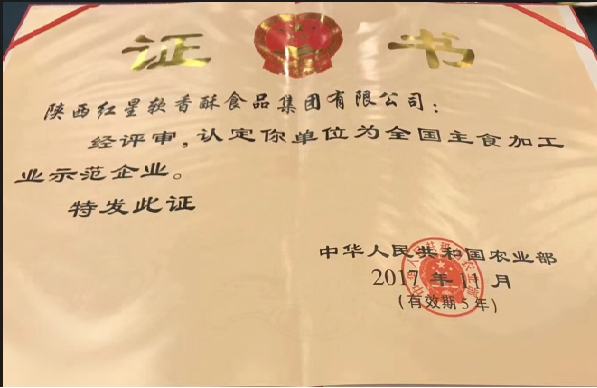 证书
陕西红星软香酥食品集团有限公司：
经评审，认定你单位为全国主食加工
业示范企业。
特发此证
中华人民共和国农业部
2017 年 11 月
（有效期5年）